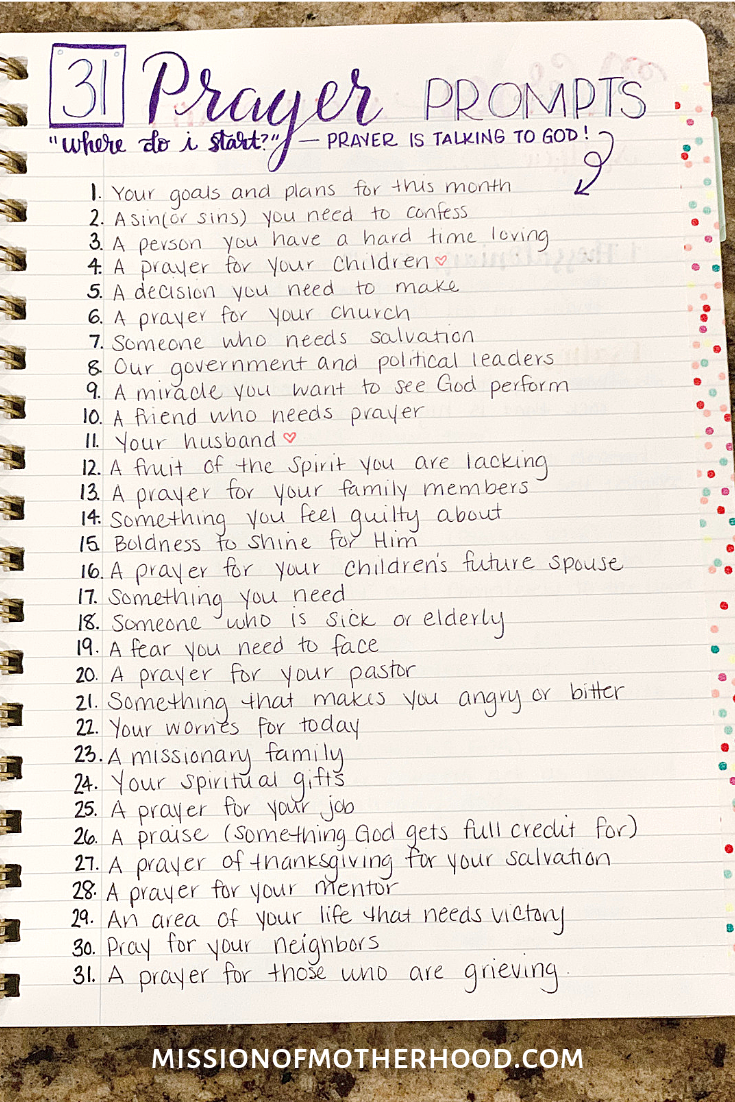 31 Prayer PROMPTS
"where do i start?" — PRAYER IS TALKING TO GOD!
1. Your goals and plans for this month
2. A sin (or sins) you need to confess
3. A person you have a hard time loving
4. A prayer for your children♡
5. A decision you need to make
6. A prayer for your church
7. Someone who needs salvation
8. Our government and political leaders
9. A miracle you want to see God perform
10. A friend who needs prayer
11. Your husband♡
12. A fruit of the Spirit you are lacking
13. A prayer for your family members
14. Something you feel guilty about
15. Boldness to shine for Him
16. A prayer for your children's future spouse
17. Something you need
18. Someone who is sick or elderly
19. A fear you need to face
20. A prayer for your pastor
21. Something that makes you angry or bitter
22. Your worries for today
23. A missionary family
24. Your spiritual gifts
25. A prayer for your job
26. A praise (something God gets full credit for)
27. A prayer of thanksgiving for your salvation
28. A prayer for your mentor
29. An area of your life that needs victory
30. Pray for your neighbors
31. A prayer for those who are grieving.
MISSIONOFMOTHERHOOD.COM